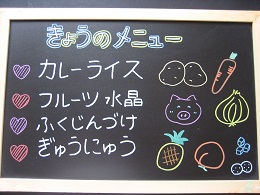 きょうのメニュー
カレーライス
フルーツ水晶
ふくじんづけ
ぎゅうにゅう